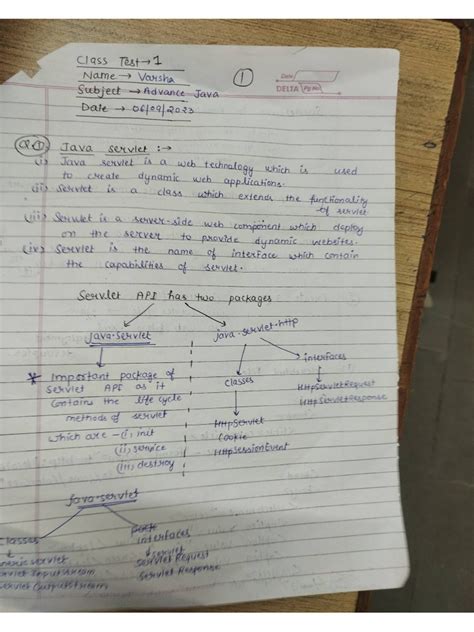 Class Test → 1
Name → Varsha
Subject → Advance Java
Date → 06/09/2023
①
Date
DELTA Pg No.
Q.1) Java servlet :→
(i) Java servlet is a web technology which is used
to create dynamic web applications.
(ii) Servlet is a class which extends the functionality
of servlet
(iii) Servlet is a server-side web component which deploy
on the server to provide dynamic websites.
(iv) Servlet is the name of interface which contain
the capabilities of servlet.
Servlet API has two packages
java.servlet
java.servlet.http
* Important package of
Servlet API as it
contains the life cycle
methods of servlet
which are - (i) init
(ii) service
(iii) destroy
classes
HttpServlet
Cookie
HttpSessionEvent
interfaces
HttpServletRequest
HttpServletResponse
java.servlet
classes
nericservlet
rvletInputstream
ervletOutputstream
interfaces
servlet
ServletRequest
Servlet Response